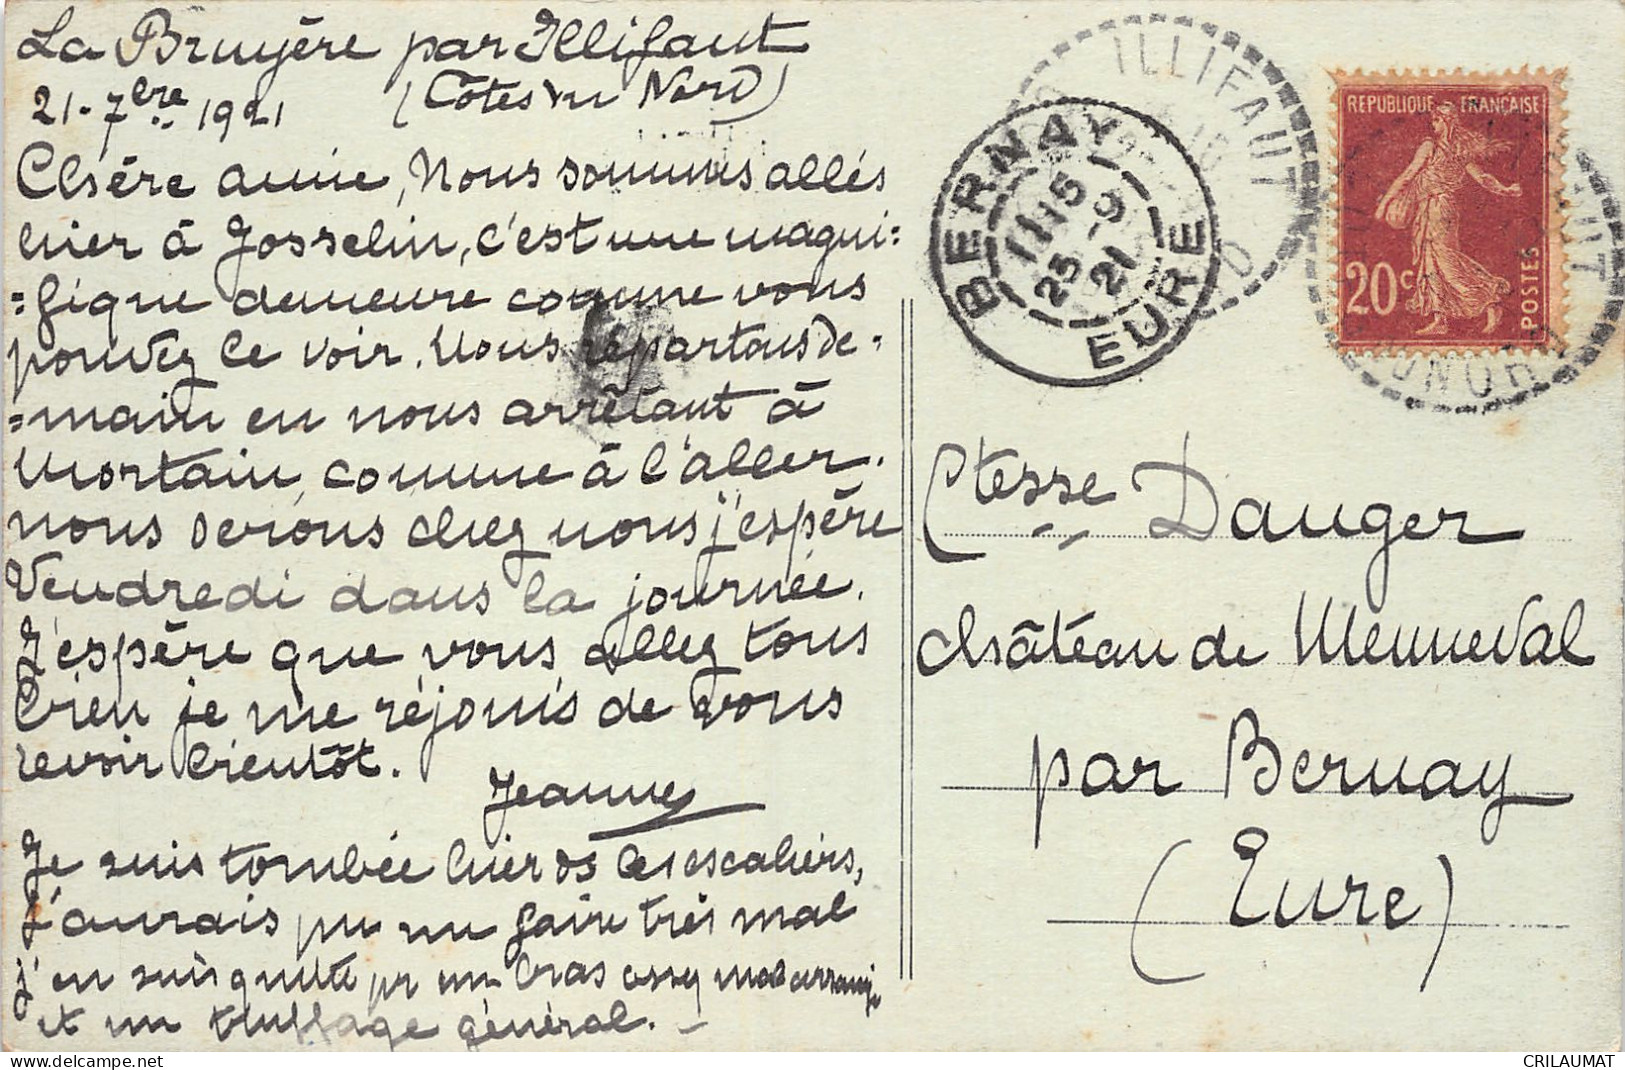 La Bruyère par Illifaut
21-7bre 1921 (Côtes du Nord)
Chère amie, Nous sommes allés
hier à Josselin, c'est une magni=
=fique demeure comme vous
pouvez le voir. Nous repartons de=
=main en nous arrêtant à
Mortain, comme à l'aller.
nous serons chez nous j'espère
Vendredi dans la journée.
J'espère que vous allez tous
bien je me réjouis de vous
revoir bientôt.
Jeanne
Je suis tombée hier ds les escaliers,
J'aurais pu me faire très mal
j'en suis quitte pr un bras assez mal arrangé
et un truffage général.
ILLIFAUT
BERNAY
11:15
25-9
21
EURE
REPUBLIQUE FRANÇAISE
20c
POSTES
DU NORD
Ctesse Dauger
château de Menneval
par Bernay
(Eure)
delcampe.net
CRILAUMAT